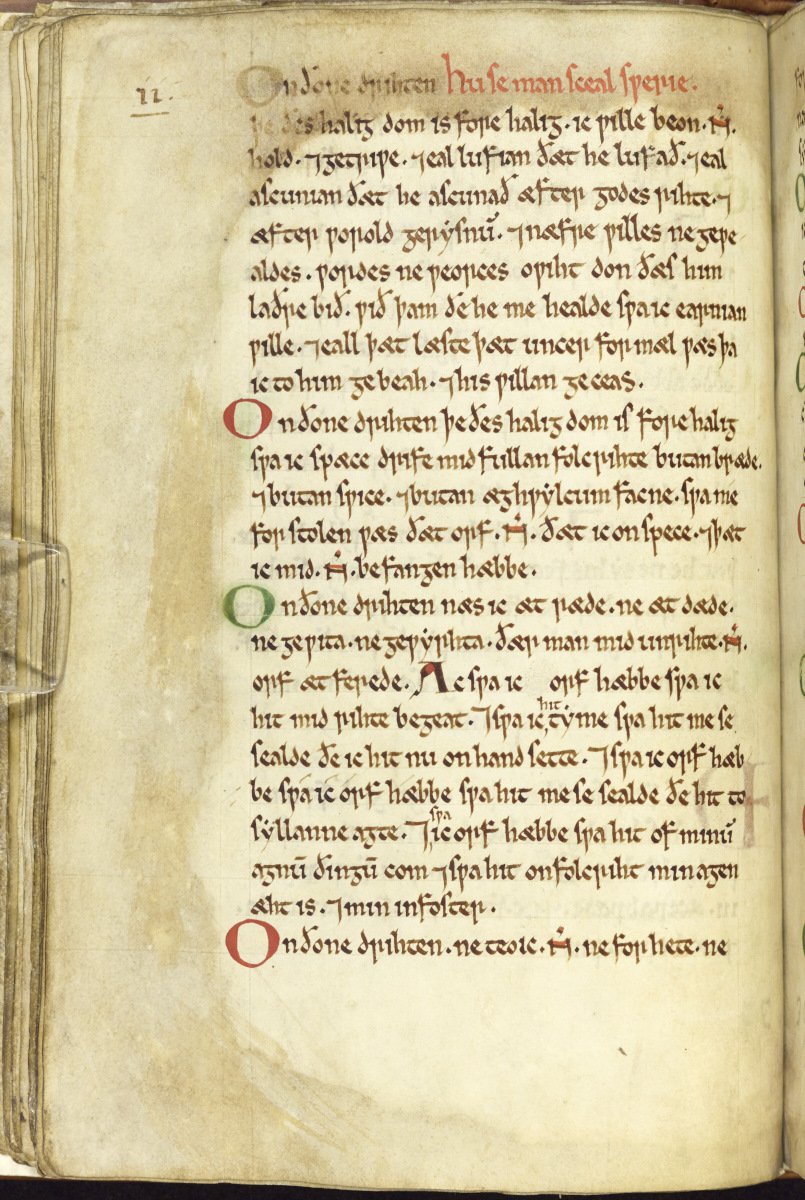 22.
On ðone drihten Hu se man sceal sƿerie.
þe ðes halig dom is fore halig. ic ƿille beon. N̄.
hold. ⁊ getriƿe. ⁊ eal lufian ðæt he lufað. ⁊ eal
ascunian ðæt he ascunað æfter godes rihte. ⁊
æfter ƿorold gerẏsnū. ⁊ næfre ƿilles ne geƿe
aldes. ƿordes ne ƿeorces oƿiht don ðæs him
laðre bið. ƿið þam ðe he me healde sƿa ic earnian
ƿille. ⁊ eall þæt læste þæt uncer formæl ƿæs þa
ic to him gebeah. ⁊ his ƿillan geceas.
On ðone drihten þe ðes halig dom is fore halig
sƿa ic sƿæce drife mid fullan folcrihte butan bræde.
⁊ butan sƿice. ⁊ butan æghƿẏlcum facne. sƿa me
forstolen ƿæs ðæt orf. N̄. ðæt ic onspece. ⁊ þæt
ic mid. N̄. befangen hæbbe.
On ðone drihten næs ic æt ræde. ne æt dæde.
ne geƿita. ne geƿẏrhta. ðær man mid unrihte. N̄.
orf ætferede. Ac sƿa ic orf hæbbe sƿa ic
hit mid rihte begeat. ⁊ sƿa ic hit tẏme sƿa hit me se
sealde ðe ic hit nu on hand sette. ⁊ sƿa ic orf hæb
be sƿa ic orf hæbbe sƿa hit me se sealde ðe hit to
sẏllanne agte. ⁊ sƿa ic orf hæbbe sƿa hit of minū
agnū ðingū com ⁊ sƿa hit on folcriht min agen
æht is. ⁊ min infoster.
On ðone drihten. ne teoic. N̄. ne for hete. ne